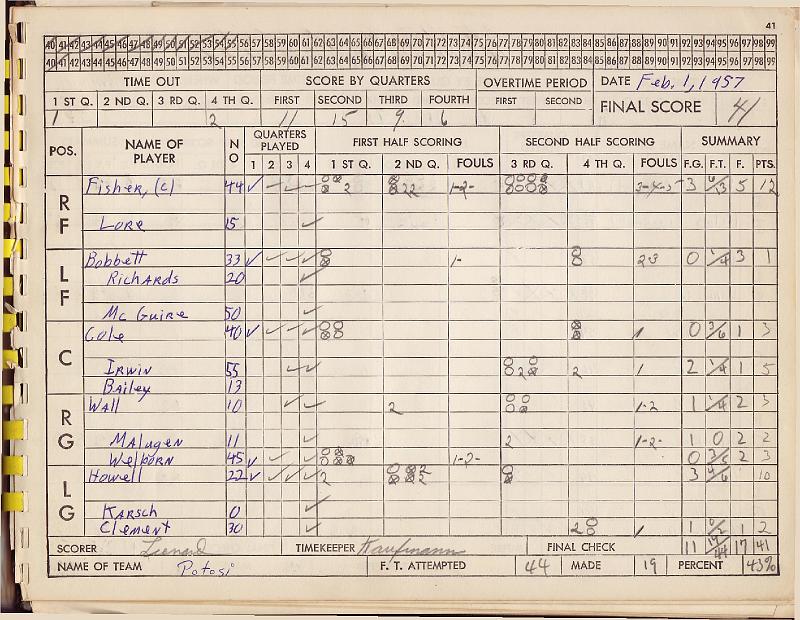 41
40 41 42 43 44 45 46 47 48 49 50 51 52 53 54 55 56 57 58 59 60 61 62 63 64 65 66 67 68 69 70 71 72 73 74 75 76 77 78 79 80 81 82 83 84 85 86 87 88 89 90 91 92 93 94 95 96 97 98 99
40 41 42 43 44 45 46 47 48 49 50 51 52 53 54 55 56 57 58 59 60 61 62 63 64 65 66 67 68 69 70 71 72 73 74 75 76 77 78 79 80 81 82 83 84 85 86 87 88 89 90 91 92 93 94 95 96 97 98 99
TIME OUT SCORE BY QUARTERS OVERTIME PERIOD DATE Feb. 1, 1957
1 ST Q. 2 ND Q. 3 RD Q. 4 TH Q. FIRST SECOND THIRD FOURTH FIRST SECOND FINAL SCORE 41
1 2 11 15 9 6
POS. NAME OF PLAYER NO QUARTERS PLAYED FIRST HALF SCORING SECOND HALF SCORING SUMMARY
1 2 3 4 1 ST Q. 2 ND Q. FOULS 3 RD Q. 4 TH Q. FOULS F.G. F.T. F. PTS.
RF Fisher, (c) 44 ✓ ✓ ✓ 2 22 1-2- 3-4-5 3 6/13 5 12
Lore 15 ✓
LF Bobbett 33 ✓ ✓ ✓ ✓ 1- 2-3 0 1/4 3 1
Richards 20 ✓
McGuire 50 ✓
C Cole 40 ✓ ✓ ✓ ✓ 1 0 3/6 1 3
Irwin 55 ✓ ✓ 2 2 1 2 1/4 1 5
Bailey 13
RG Wall 10 ✓ ✓ 2 1-2 1 1/4 2 3
Malugen 11 ✓ 2 1-2- 1 0 2 2
Welborn 45 ✓ ✓ ✓ 1-2- 0 3/5 2 3
LG Howell 22 ✓ ✓ ✓ ✓ 2 2 2 3 4/6 10
Karsch 0 ✓
Clement 30 ✓ 2 1 1 0/2 1 2
SCORER TIMEKEEPER Kaufmann FINAL CHECK 11 19/44 17 41
NAME OF TEAM Potosi F. T. ATTEMPTED 44 MADE 19 PERCENT 43%